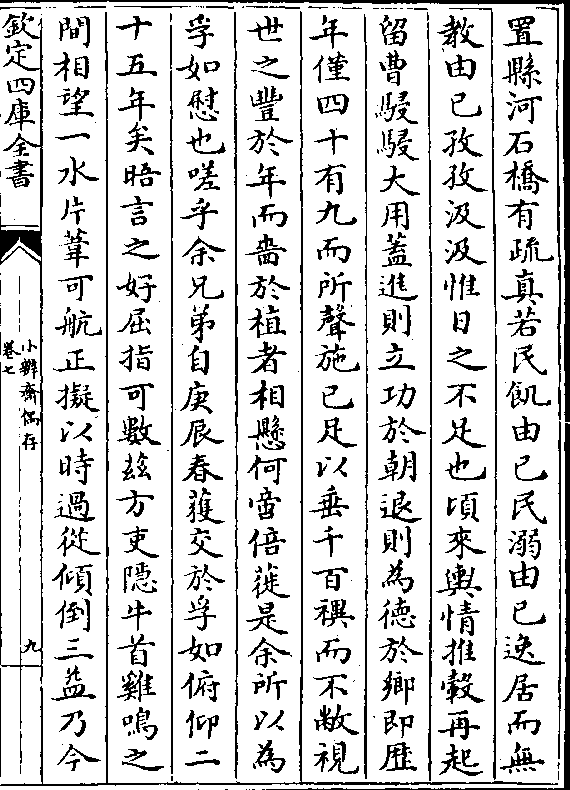 置縣河石橋有疏真若民飢由已民溺由已逸居而無
教由已孜孜汲汲惟日之不足也頃來輿情推轂再起
留曹駸駸大用蓋進則立功於朝退則為徳於鄉即歴
年僅四十有九而所聲施已足以垂千百禩而不敝視
世之豐於年而嗇於植者相懸何啻倍蓰是余所以為
孚如慰也嗟乎余兄弟自庚辰春獲交於孚如俯仰二
十五年矣晤言之好屈指可數玆方吏隠牛首雞鳴之
間相望一水片葦可航正擬以時過從傾倒三益乃今
欽定四庫全書
小辨齋偶存
卷七
九